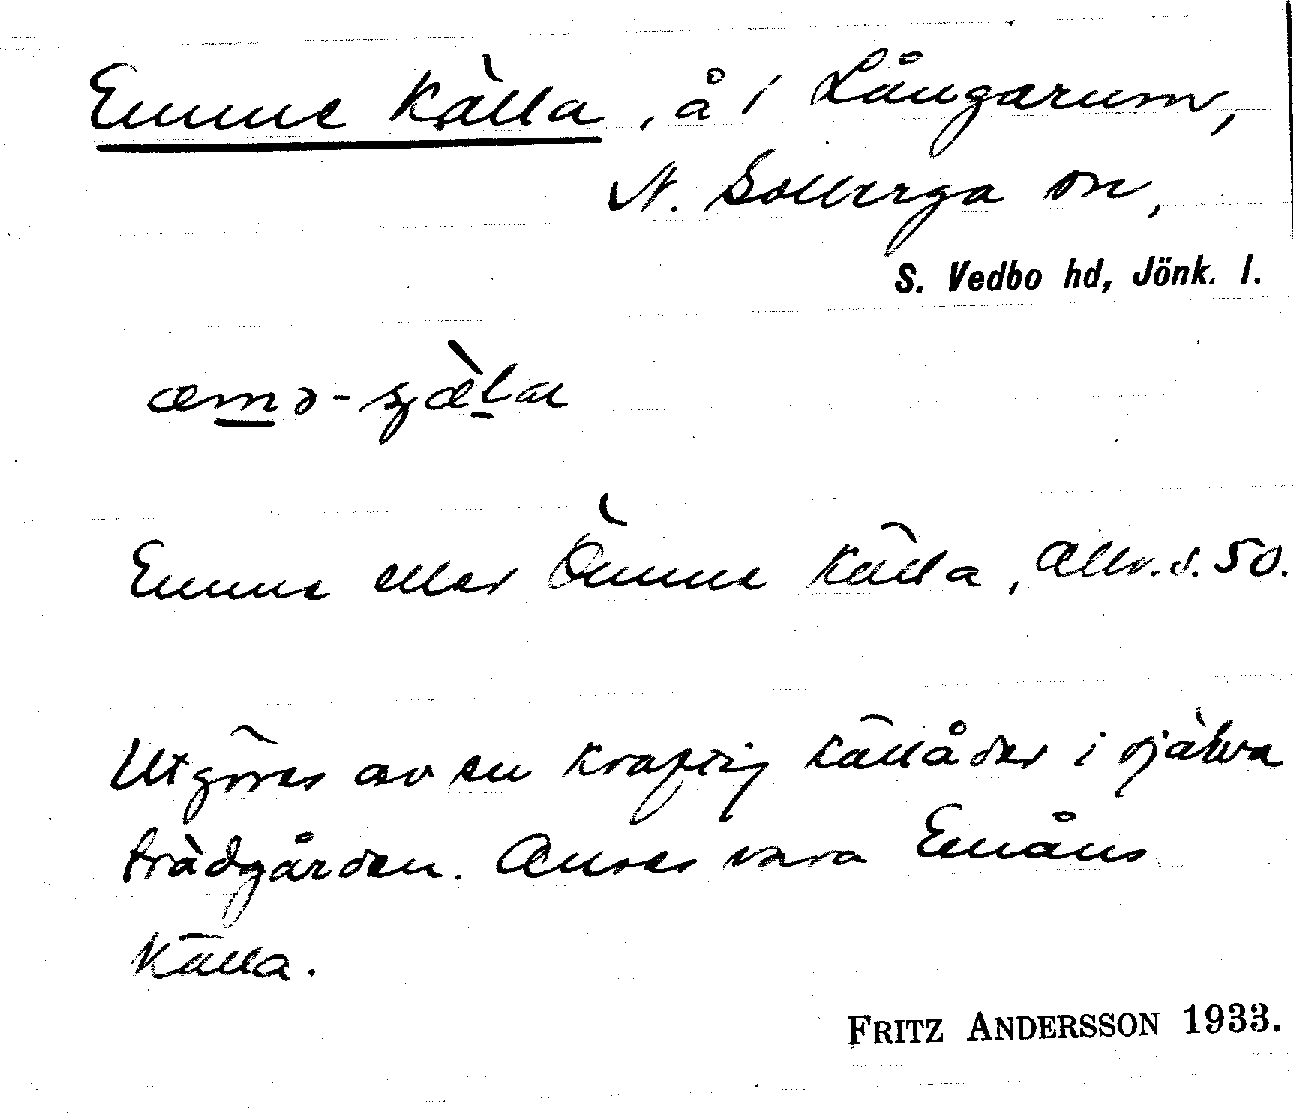 Emme källa, å i Långarum,
N. Solberga sn,
S. Vedbo hd, Jönk. l.
Emme eller Ömme källa, Allv. s. 50.
Utgöres av en kraftig källåder i själva
trädgården. Anses vara Emåns
källa.
FRITZ ANDERSSON 1933.